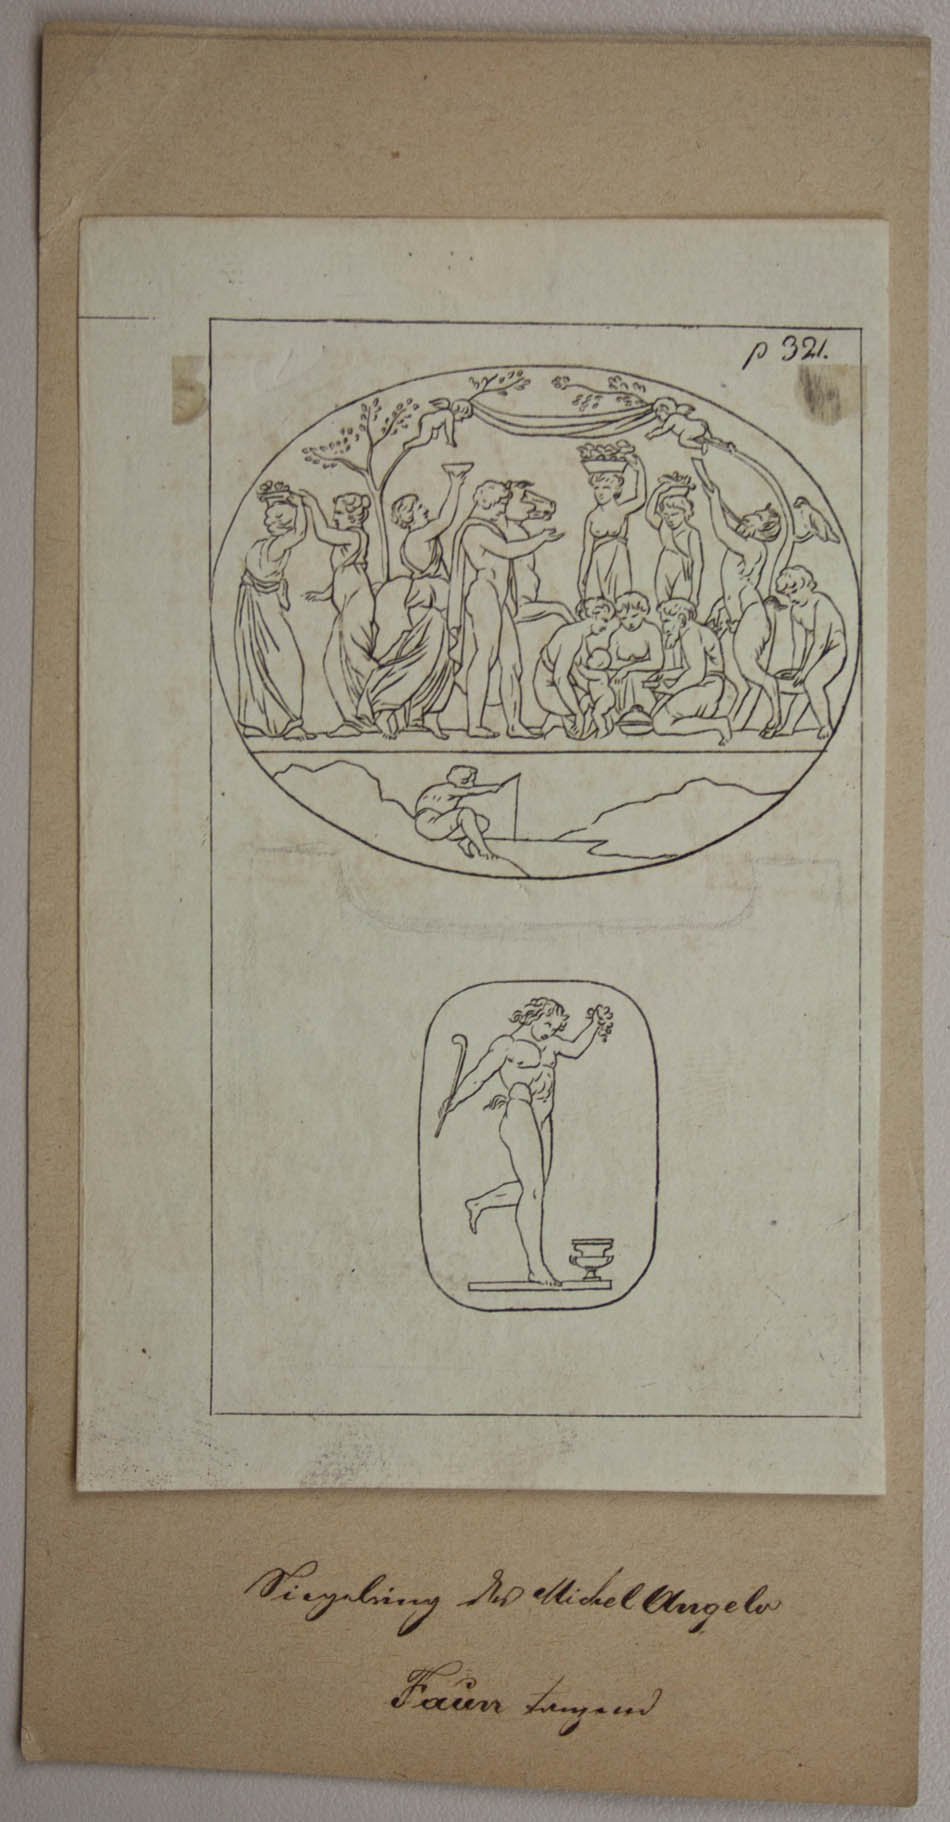 p 321.
Siegelring des Michel Angelo
Faun tanzend